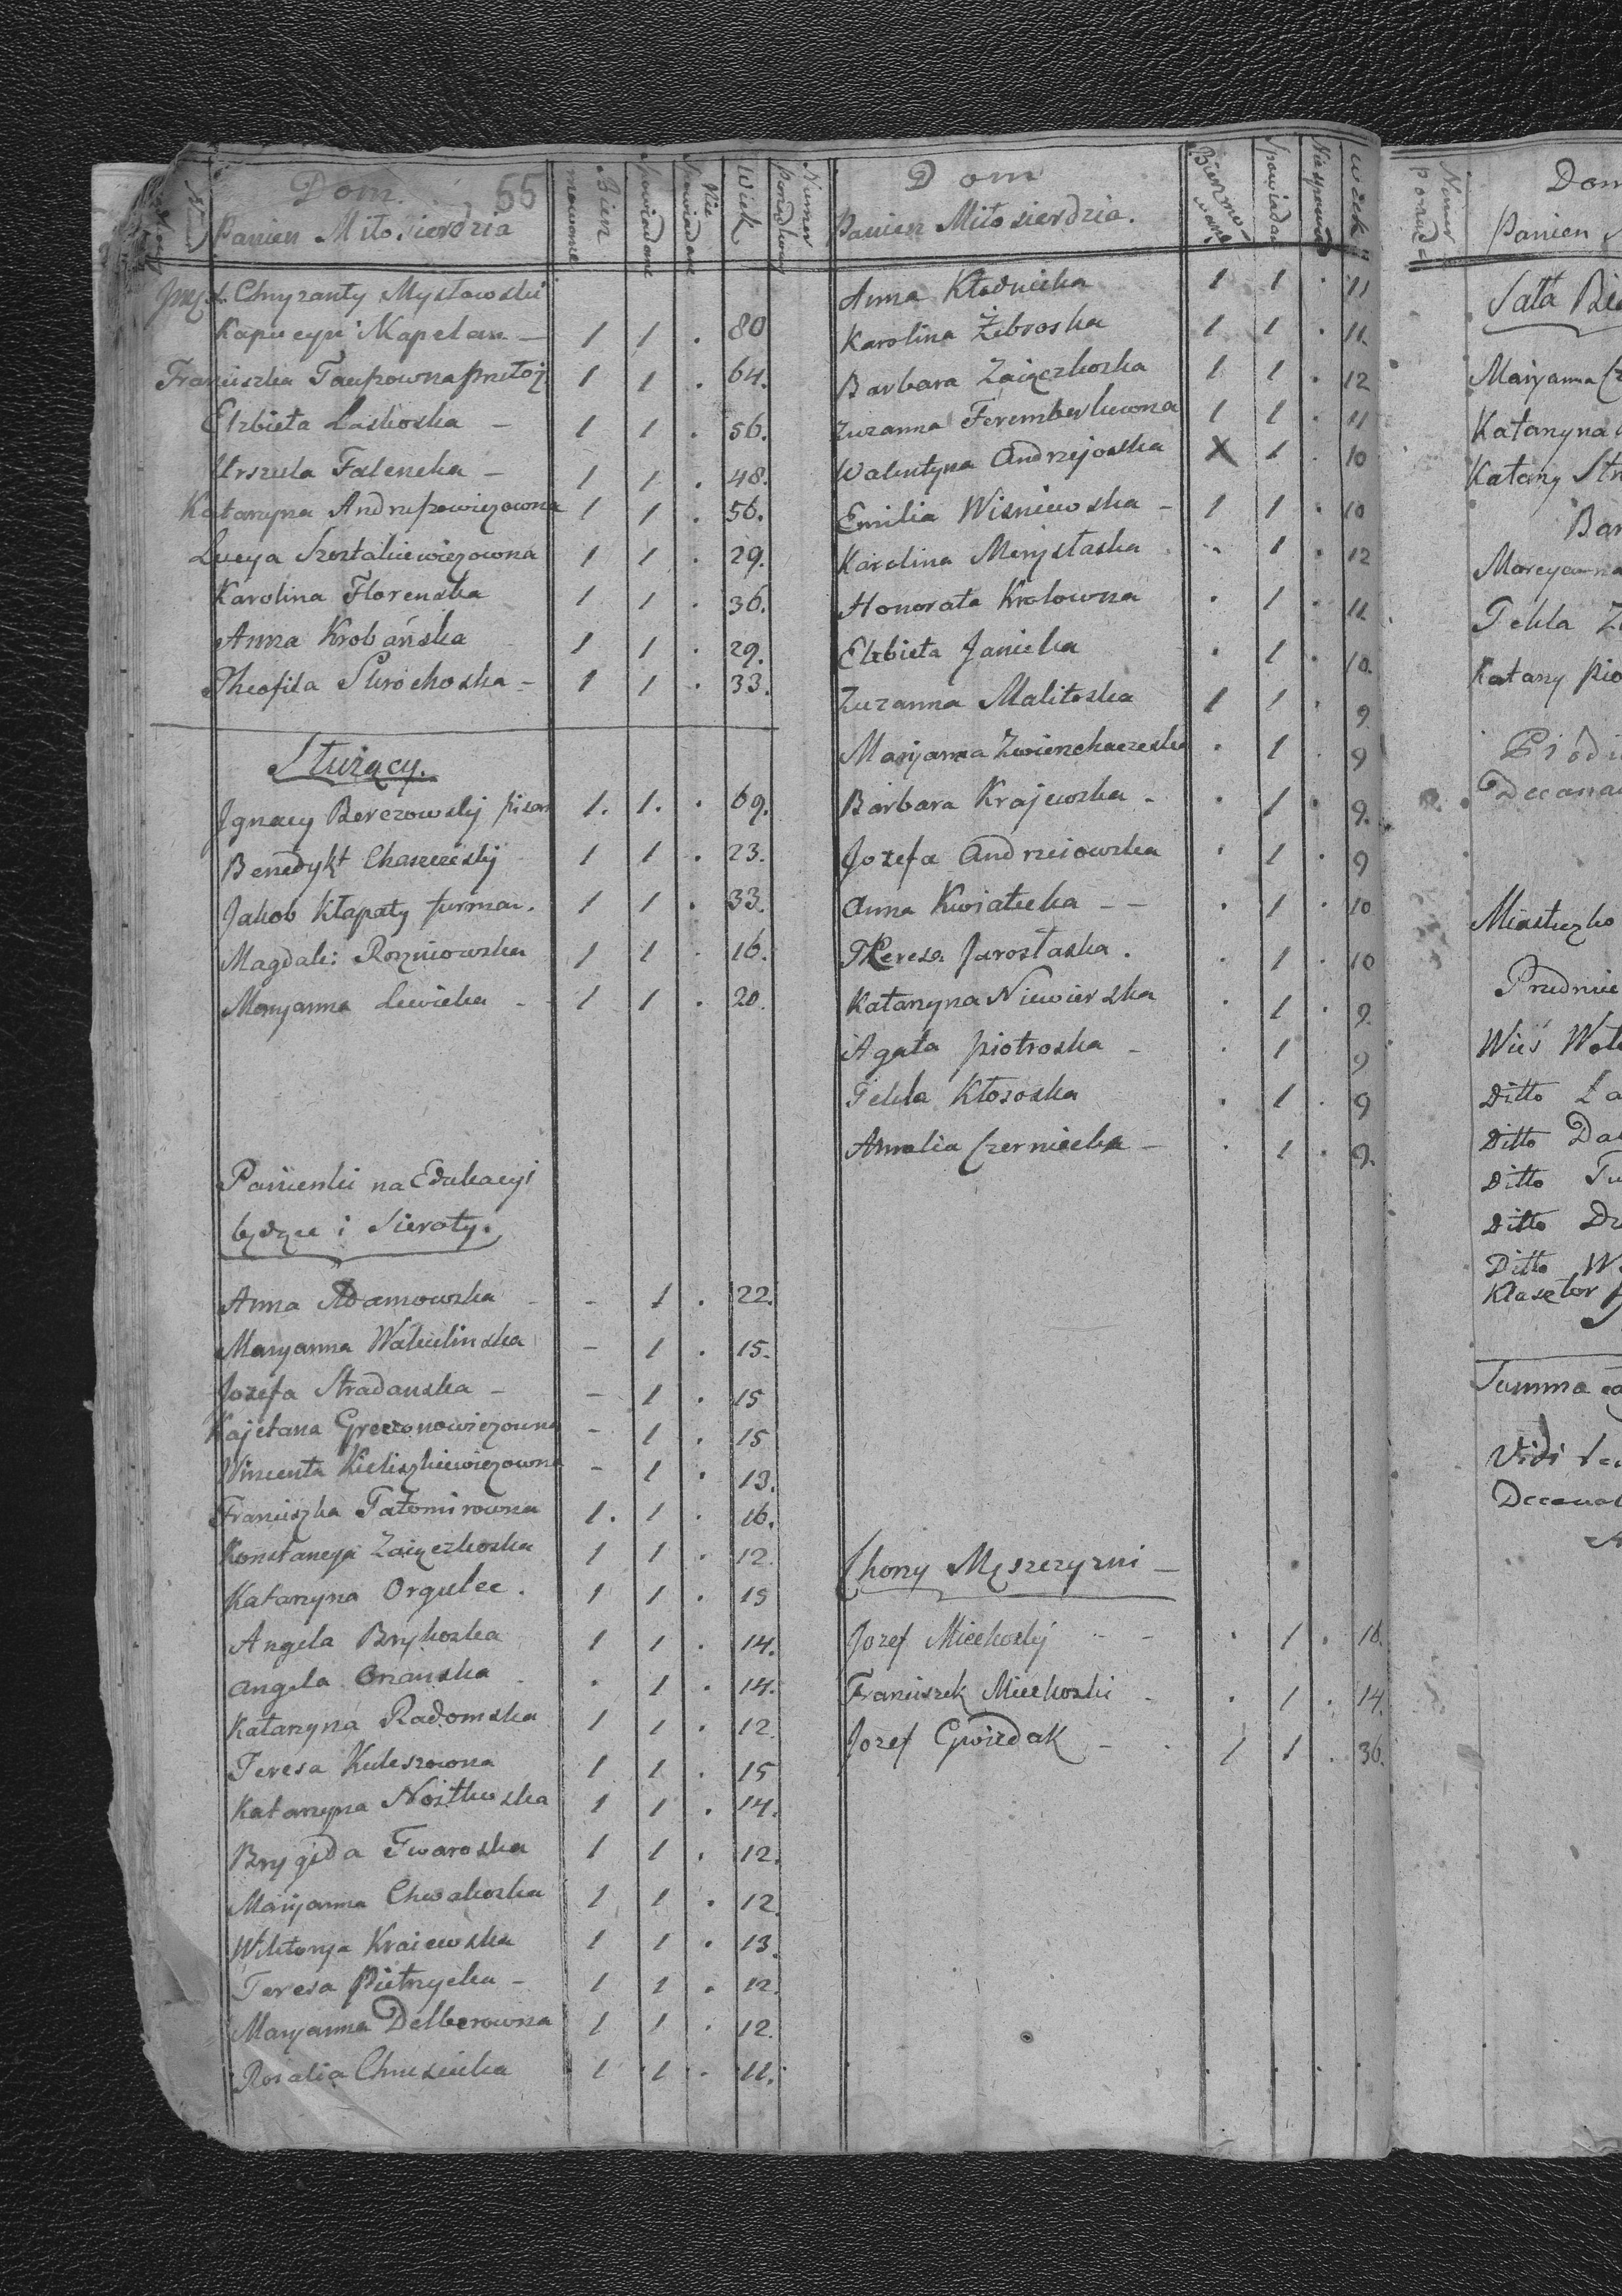 Dom. 55
Panien Miłosierdzia
Bierz
mowane
spowiadane
Nie
spowiadane
Wiek
Numer
porządkowy
X. Chryzanty Mysłowski
Kapucyn Kapelan — 1 1 . 80
Franciszka Taupowna przełoż. 1 1 . 64.
Elzbieta Laskoska — 1 1 . 56.
Urszula Falencka — 1 1 . 48.
Katarzyna 1 1 . 56.
Lucya Szostakiewiczowna 1 1 . 29.
Karolina Florenska 1 1 . 36.
Anna Krobańska 1 1 . 29.
Theofila Skrochoska — 1 1 . 33.
Służący.
Jgnacy Berezowskj pisarz 1. 1. . 69.
Benedykt 1 1 . 23.
Jakob Kłapaty furman. 1 1 . 33.
Magdal: Rozniowska 1 1 . 16.
Maryanna Lewicka - 1 1 . 20.
Panienki na Edukacyi
będące i Sieroty.
Anna Adamowska - - 1 . 22.
Maryanna Wakulinska - 1 . 15.
Jozefa Stradanska - - 1 . 15
Kajetana - 1 . 15
Wincenta Kieliszkiewiczowna - 1 . 13.
Franciszka Tatomirowna 1. 1 . 16.
Konstancya Zaiączkoska 1 1 . 12.
Katarzyna Orgulec. 1 1 . 15
Angela Brykoska 1 1 . 14.
Angela Orzanska . 1 . 14.
Katarzyna Radomska 1 1 . 12.
Teresa Kuleszowna 1 1 . 15
Katarzyna Nositkoska 1 1 . 14.
Brygida Twaroska 1 1 . 12.
Maryanna Chwakoska 1 1 . 12.
Wiktorya Kraiewska 1 1 . 13.
Teresa Pietrzycka - 1 1 . 12.
Maryanna Delberowna 1 1 . 12.
Rosalia 1 1 . 11.
Dom
Panien Miłosierdzia.
Bierzmo
wane
Spowiadane
Niespowiad
Wiek
Anna Kłodnicka 1 1 . 11
Karolina Żebroska 1 1 . 11.
Barbara Zaiączkoska 1 1 . 12
Zuzanna Feremberkowna 1 1 . 11
Walentyna Andrzejoska X 1 . 10
Emilia Wisniewska - 1 1 . 10
Karolina Merysłaska . 1 . 12
Honorata Krolowna . 1 . 11.
Elzbieta Janicka . 1 . 10.
Zuzanna Malitoska 1 1 . 9.
Maryanna . 1 . 9
Barbara Krajewska - . 1 . 9.
Jozefa Andrzeiowska . 1 . 9
Anna Kwiatecka - - . 1 . 10
Theresa Jarosłaska. . 1 . 10
Katarzyna Niewierska . 1 . 9.
Agata Piotroska - . 1 . 9
Tekla Kłososka . 1 . 9
Amalia Czerniecka - . 1 . 9.
Chorzy Męszczyzni —
Jozef Miechoskj - - . 1 . 18.
Franciszek Miechoski - . 1 . 14.
Jozef Gwizdak - . 1 1 . 36.
Numer
porząd=
Dom
Panien
Sala
Maryanna
Katarzyna
Katarzy
Tekla
Katarzy
Miasteczko
Wieś
Ditto
Ditto
Ditto
Ditto
Ditto
Klasztor
Summa
Vidi